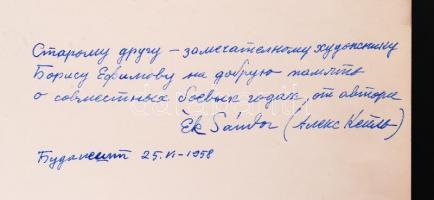 Старому другу – замечателному художнику
Борису Ефимову на добрую память
о совместных боевых годах, от автора
Ék Sándor (Алекс Кейль)
Будапешт 25.VI-1958